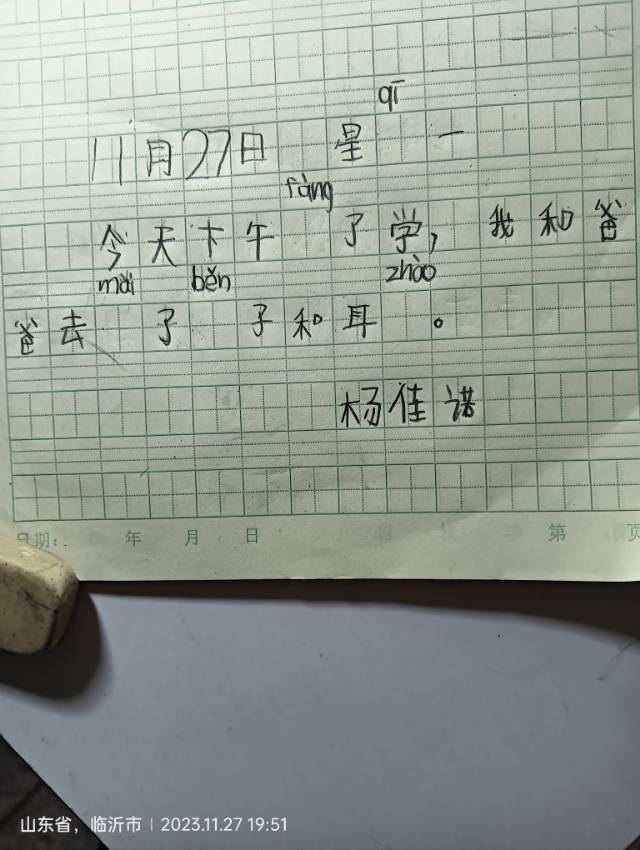 qī
11月27日 星 一
fàng
今天下午 了学，我和爸
mǎi běn zhào
爸去 了 子和耳 。
杨佳诺
日期： 年 月 日 第 页
山东省，临沂市 | 2023.11.27 19:51